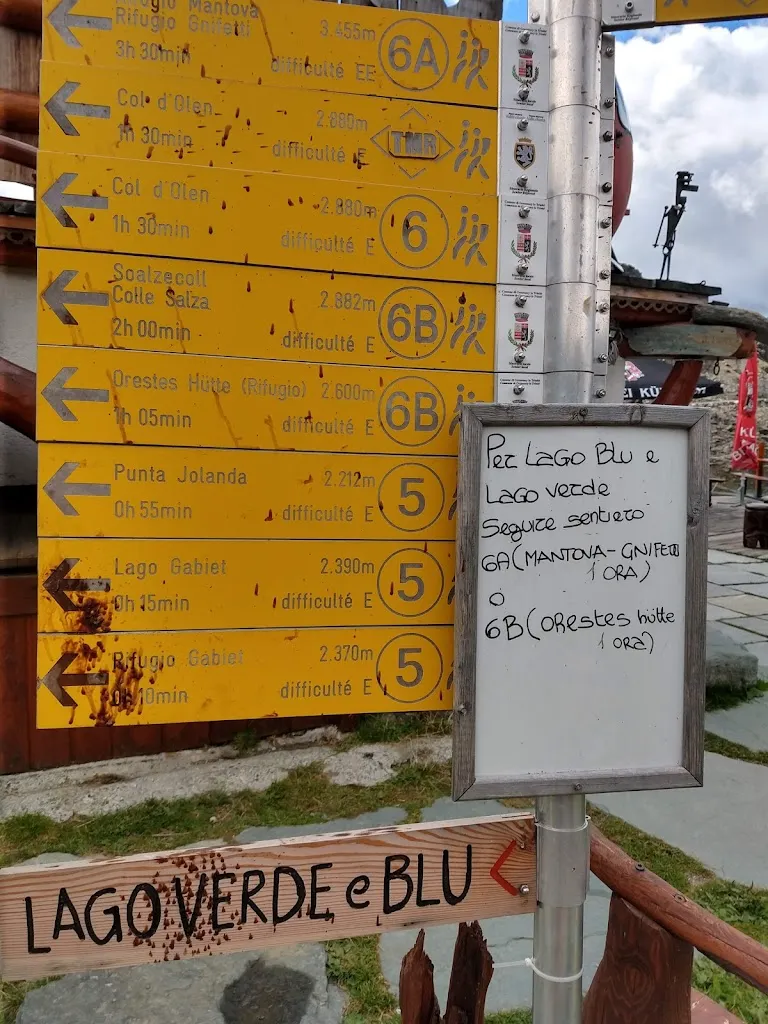 Rifugio Mantova
Rifugio Gnifetti
3.455m
3h 30min
difficulté EE
6A
Col d'Olen
2.880m
1h 30min
difficulté E
TMR
Col d'Olen
2.880m
1h 30min
difficulté E
6
Soalzecoll
Colle Salza
2.882m
2h 00min
difficulté E
6B
Orestes Hütte (Rifugio)
2.600m
1h 05min
difficulté E
6B
Punta Jolanda
2.212m
0h 55min
difficulté E
5
Lago Gabiet
2.390m
0h 15min
difficulté E
5
Rifugio Gabiet
2.370m
0h 10min
difficulté E
5
Per Lago Blu e
Lago verde
Seguire sentiero
6A (MANTOVA-GNIFETTI
1 ORA)
O
6B (Orestes hütte
1 ora)
LAGO VERDE e BLU